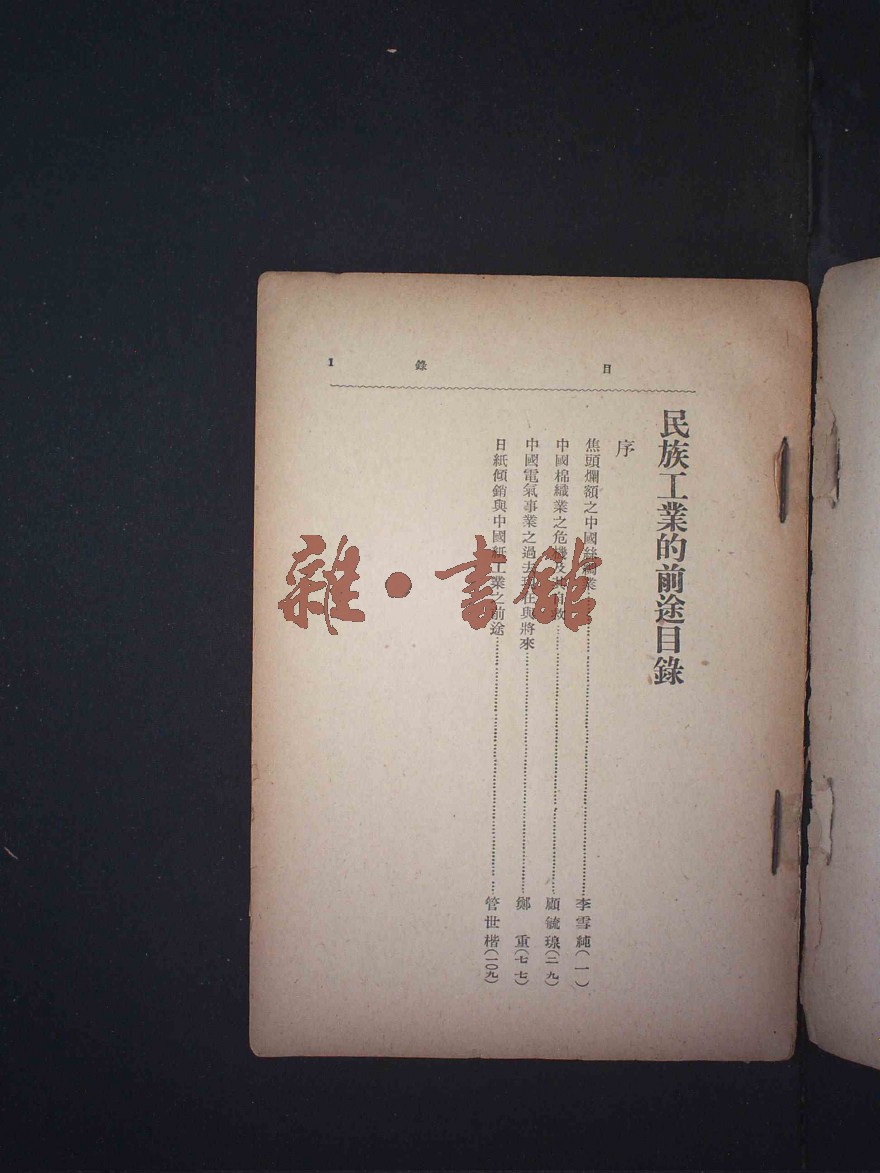 目錄 1
民族工業的前途目錄
序
焦頭爛額之中國絲綢業……李雪純(一)
中國棉織業之危機及其自救……顧毓瑔(二九)
中國電氣事業之過去現在與將來……鄭重(七七)
日紙傾銷與中國紙工業之前途……管世楷(一〇九)
雜·書館